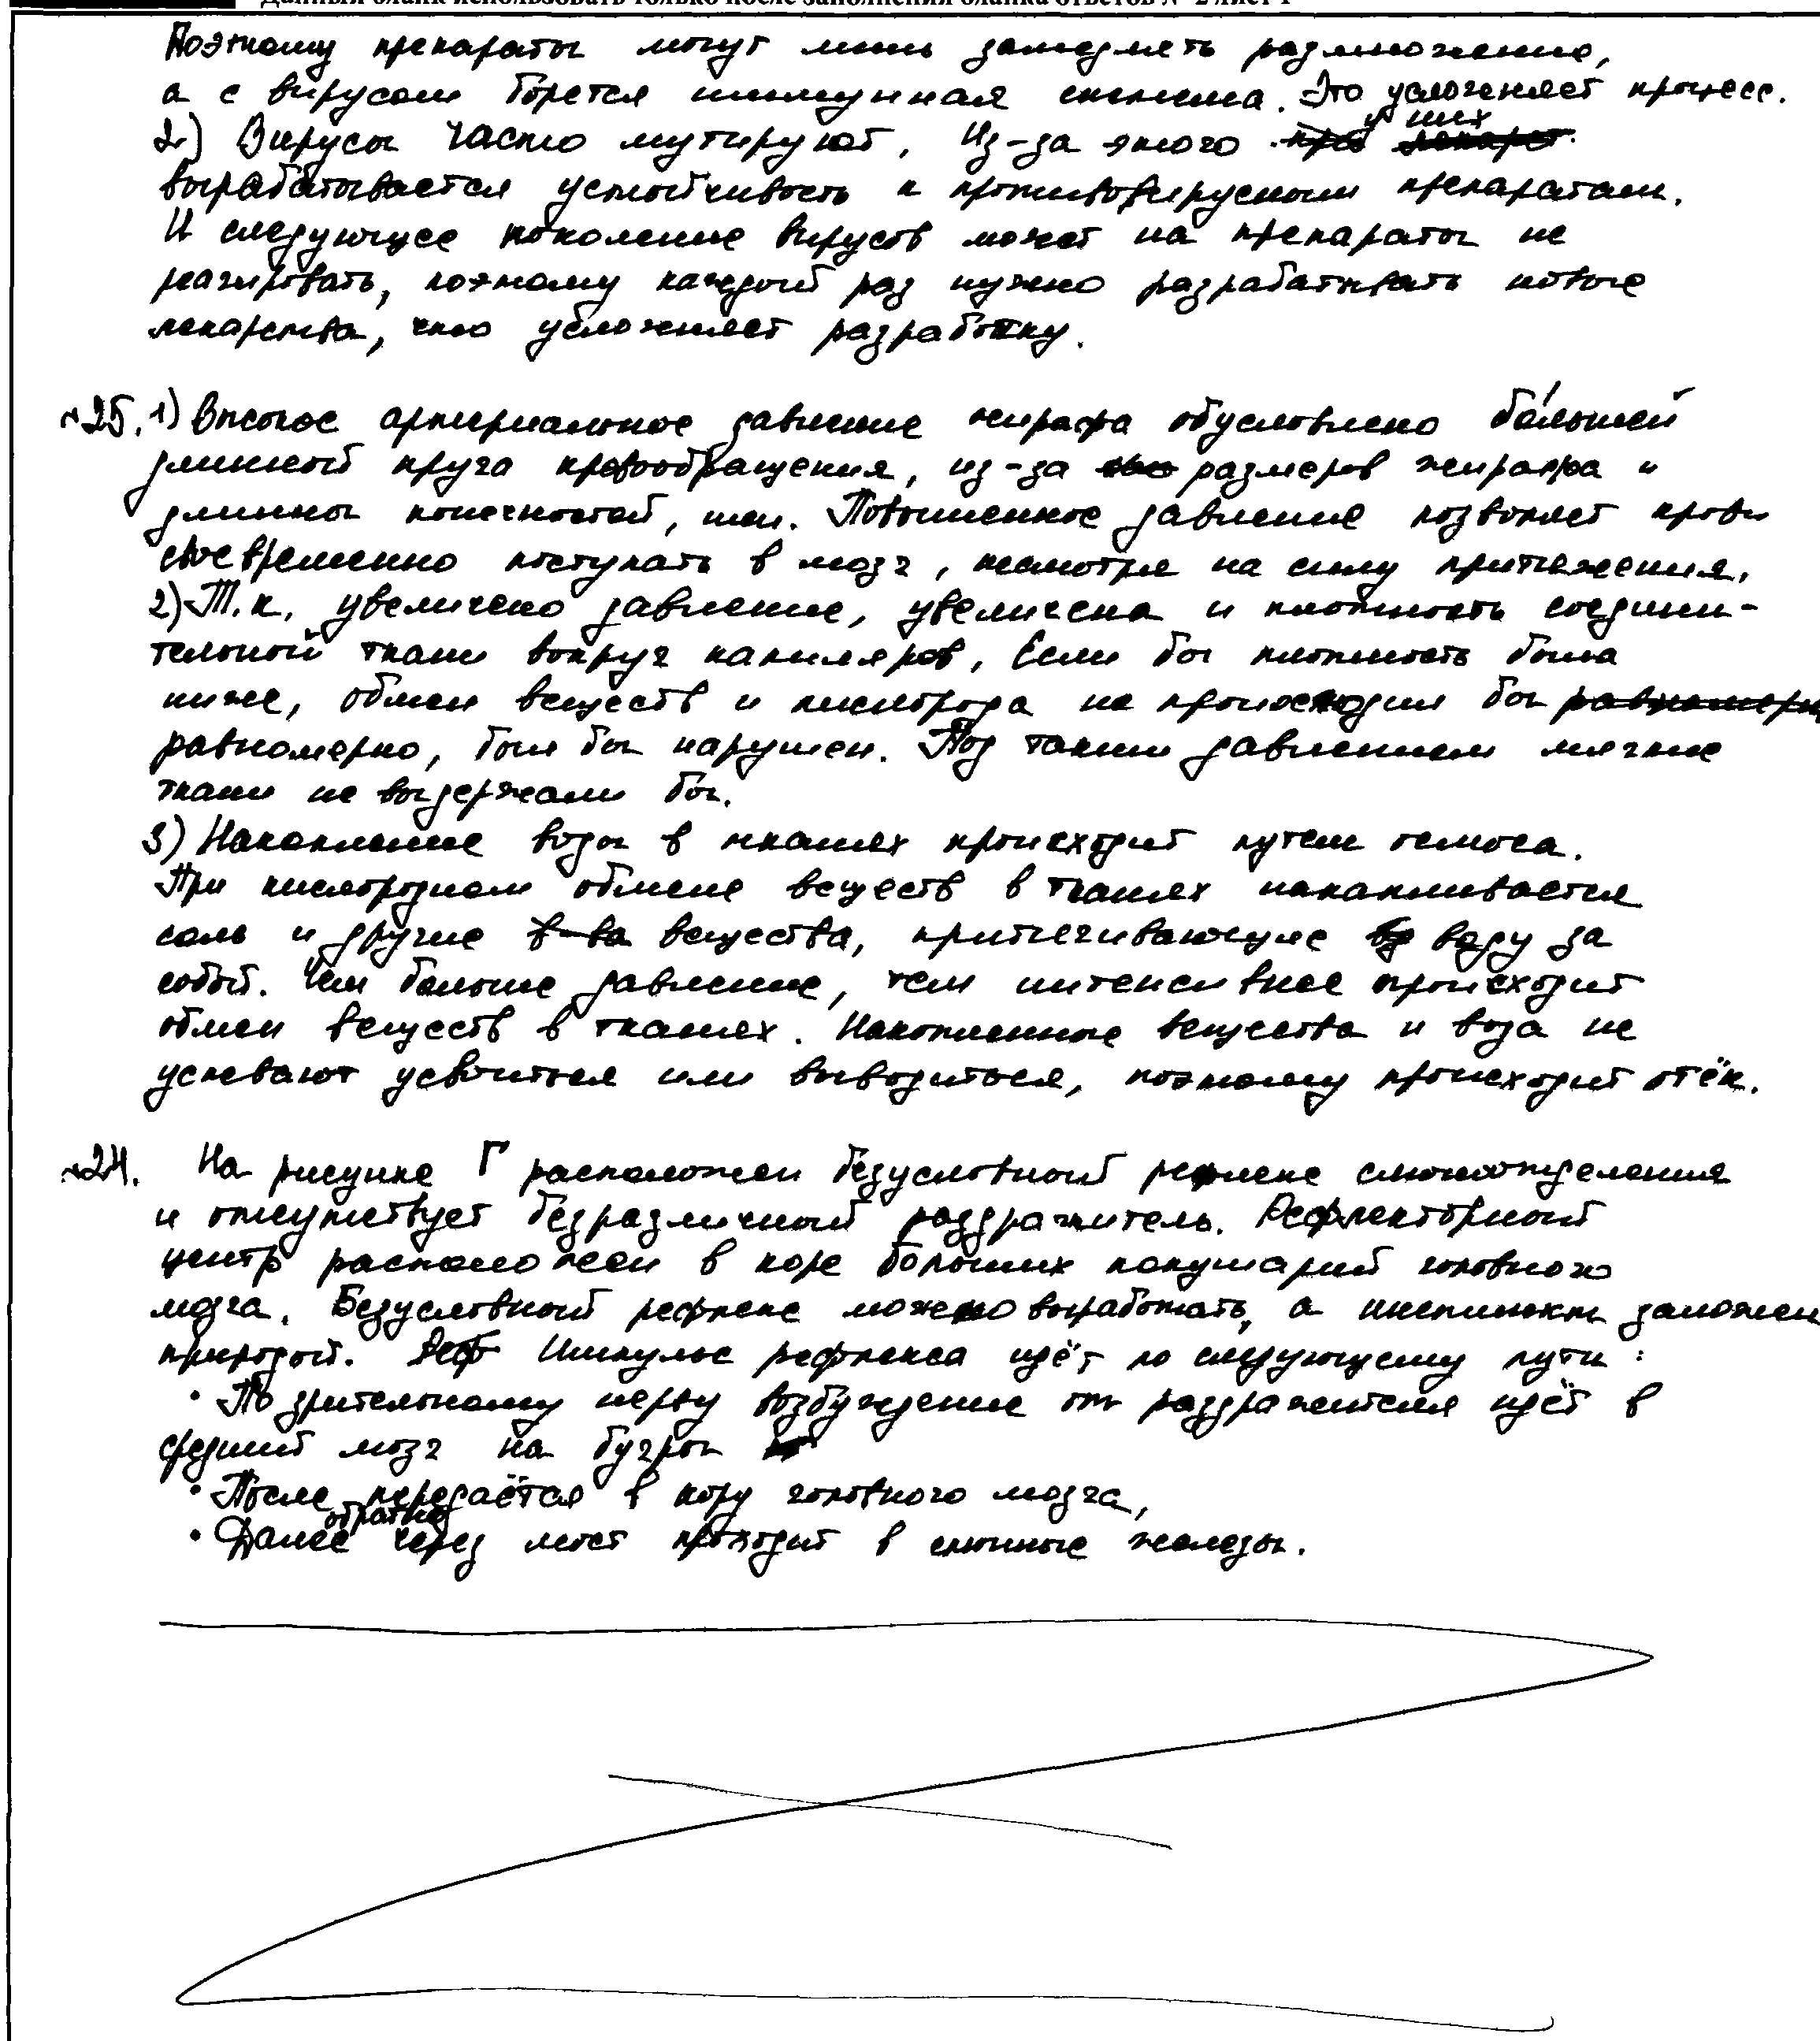 Данный бланк использовать только после заполнения бланка ответов № 2 лист 1
Поэтому препараты могут лишь замедлять размножение,
а с вирусом борется иммунная система. Это усложеняет процесс.
2) Вирусы часто мутируют, Из-за этого у них
вырабатывается устойчивость к противовирусным препаратам.
И следующее поколение вирусов может на препараты не
реагировать, поэтому каждый раз нужно разрабатывать новые
лекарства, что усложеняет разработку.
№25. 1) Высокое артериальное давление жирафа обусловлено бо́льшей
длинной круга кровообращения, из-за размеров жирафа и
длинны конечностей, шеи. Повышенное давление позволяет крови
своевременно поступать в мозг, несмотря на силу притяжения.
2) Т.к. увеличено давление, увеличена и плотность соедини-
тельной ткани вокруг капиляров, Если бы плотность была
ниже, обмен веществ и кислорода не происходил бы
равномерно, был бы нарушен. Под таким давлением мягкие
ткани не выдержали бы.
3) Накопление воды в тканях происходит путем осмоса.
При кислородном обмене веществ в тканях накапливается
соль и другие вещества, притягивающие воду за
собой. Чем больше давление, тем интенсивнее происходит
обмен веществ в тканях. Накопленные вещества и вода не
успевают усвоиться или выводиться, поэтому происходит отёк.
№24. На рисунке Г расположен безусловный рефлекс слюноотделения
и отсутствует безразличный раздражитель. Рефлекторный
центр расположен в коре больших полушарий головного
мозга. Безусловный рефлекс можно выработать, а инстинкт заложен
природой. Импульс рефлекса идёт по следующему пути:
• По зрительному нерву возбуждение от раздражителя идёт в
средний мозг на бугры
• После передаётся в кору головного мозга,
• Далее обратно через мост проходит в слюнные железы.